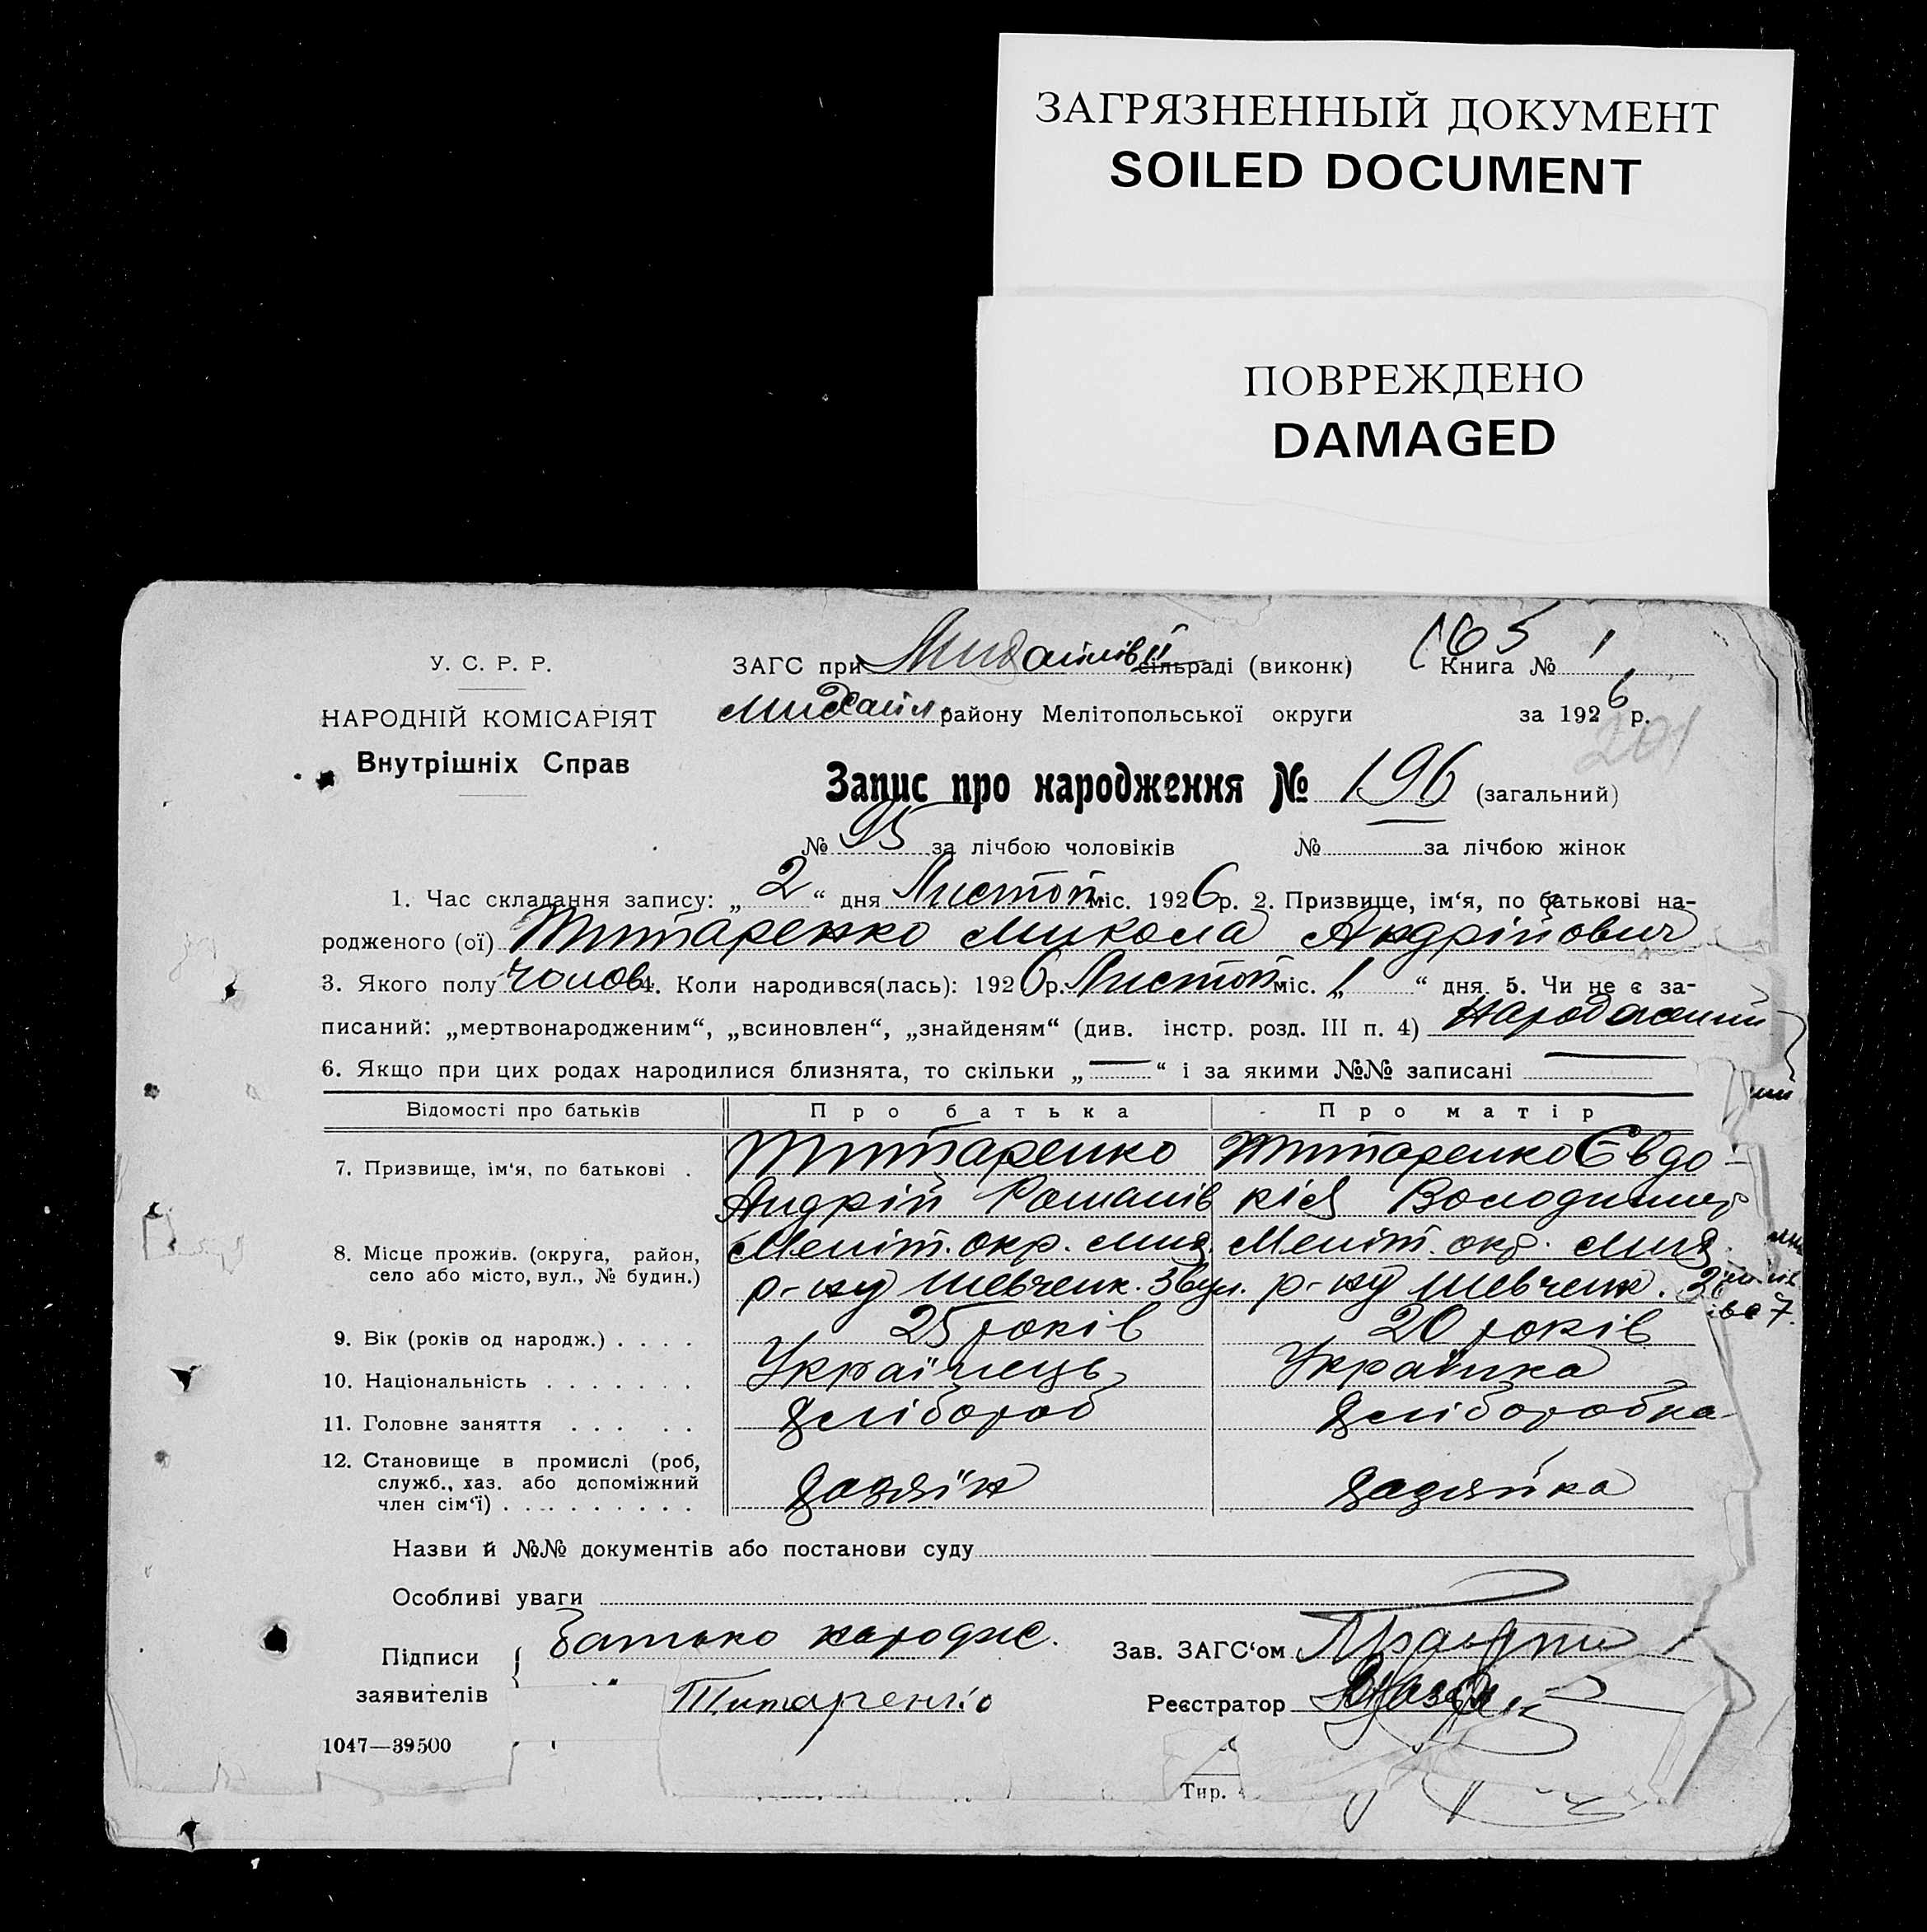 ЗАГРЯЗНЕННЫЙ ДОКУМЕНТ
SOILED DOCUMENT
ПОВРЕЖДЕНО
DAMAGED
165
У. С. Р. Р.
ЗАГС при Михайлівській сільраді (виконк) Книга № 1
НАРОДНІЙ КОМІСАРІЯТ
Михайл. району Мелітопольської округи за 1926 р.
201
Внутрішніх Справ
Запис про народження № 196 (загальний)
№ 95 за лічбою чоловіків № за лічбою жінок
1. Час складання запису: „2“ дня Листоп. міс. 1926 р. 2. Призвище, ім‘я, по батькові на-
родженого (ої) Титаренко Микола Андрійович
3. Якого полу чолов. 4. Коли народився(лась): 1926 р. Листоп міс. „1“ дня. 5. Чи не є за-
писаний: „мертвонародженим“, „всиновлен“, „знайденям“ (див. інстр. розд. III п. 4)
6. Якщо при цих родах народилися близнята, то скільки „—“ і за якими №№ записані —
Відомості про батьків Про батька Про матір
7. Призвище, ім‘я, по батькові . Титаренко Титаренко Євдо-
Андрій Романів кія Володимир
8. Місце прожив. (округа, район, Меліт. окр. Мих. Меліт. окр. Мих.
село або місто, вул., № будин.) р-ну Шевченк. 3 вул. р-ну Шевченк. 3
9. Вік (років од народж.) . . . . 25 років 20 років
10. Національність . . . . . . . Українець Українка
11. Головне заняття . . . . . Хлібороб Хліборобка
12. Становище в промислі (роб,
служб., хаз. або допоміжний Хазяїн Хазяйка
член сім‘ї) . . . . . . . . . .
Назви й №№ документів або постанови суду
Особливі уваги
Підписи Батько народж. Зав. ЗАГС‘ом
заявителів Титаренко Реєстратор
1047—39500
Тир.